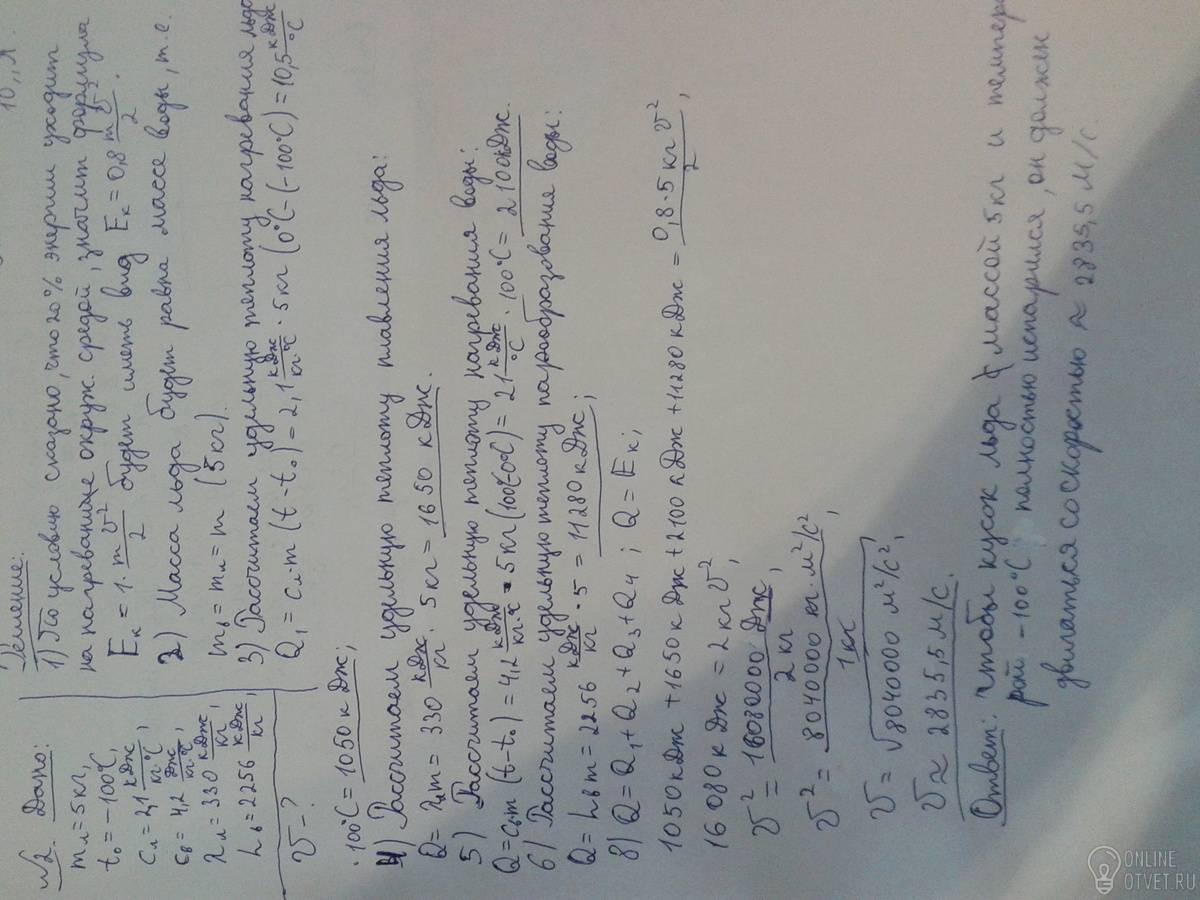 10 „Я
№2. Дано:
mл = 5 кг,
t₀ = -100°C,
cл = 2,1 кДж/кг·°C,
cв = 4,2 кДж/кг·°C,
λл = 330 кДж/кг,
Lв = 2256 кДж/кг,
V - ?
Решение:
1) По условию сказано, что 20% энергии уходит
на нагревание окруж. средой, значит формула
Eк = 1· mv²/2 будет иметь вид Eк = 0,8 mv²/2.
2) Масса льда будет равна массе воды, т.е.
mв = mл = m (5 кг).
3) Рассчитаем удельную теплоту нагревания льда
Q₁ = cл·m (t - t₀) = 2,1 кДж/кг·°C · 5 кг (0°C - (-100°C) = 10,5 кДж/°C
· 100°C = 1050 кДж;
4) Рассчитаем удельную теплоту плавления льда:
Q = λлm = 330 кДж/кг · 5 кг = 1650 кДж.
5) Рассчитаем удельную теплоту нагревания воды:
Q = cвm (t - t₀) = 4,2 кДж/кг·°C · 5 кг (100°C-0°C) = 21 кДж/°C · 100°C = 2100 кДж.
6) Рассчитаем удельную теплоту парообразование воды:
Q = Lвm = 2256 кДж/кг · 5 = 11280 кДж;
8) Q = Q₁ + Q₂ + Q₃ + Q₄ ; Q = Eк;
1050 кДж + 1650 кДж + 2100 кДж + 11280 кДж = 0,8·5 кг v²/2,
16 080 кДж = 2 кг v²,
v² = 16080000 Дж/2 кг,
v² = 8040000 кг м²/с²/1 кг,
v = √8040000 м²/с²,
v ≈ 2835,5 м/с.
Ответ: чтобы кусок льда с массой 5 кг и темпера
рой -100°C полностью испарился, он должен
двигаться со скоростью ≈ 2835,5 м/с.
ONLINE
OTVET.RU